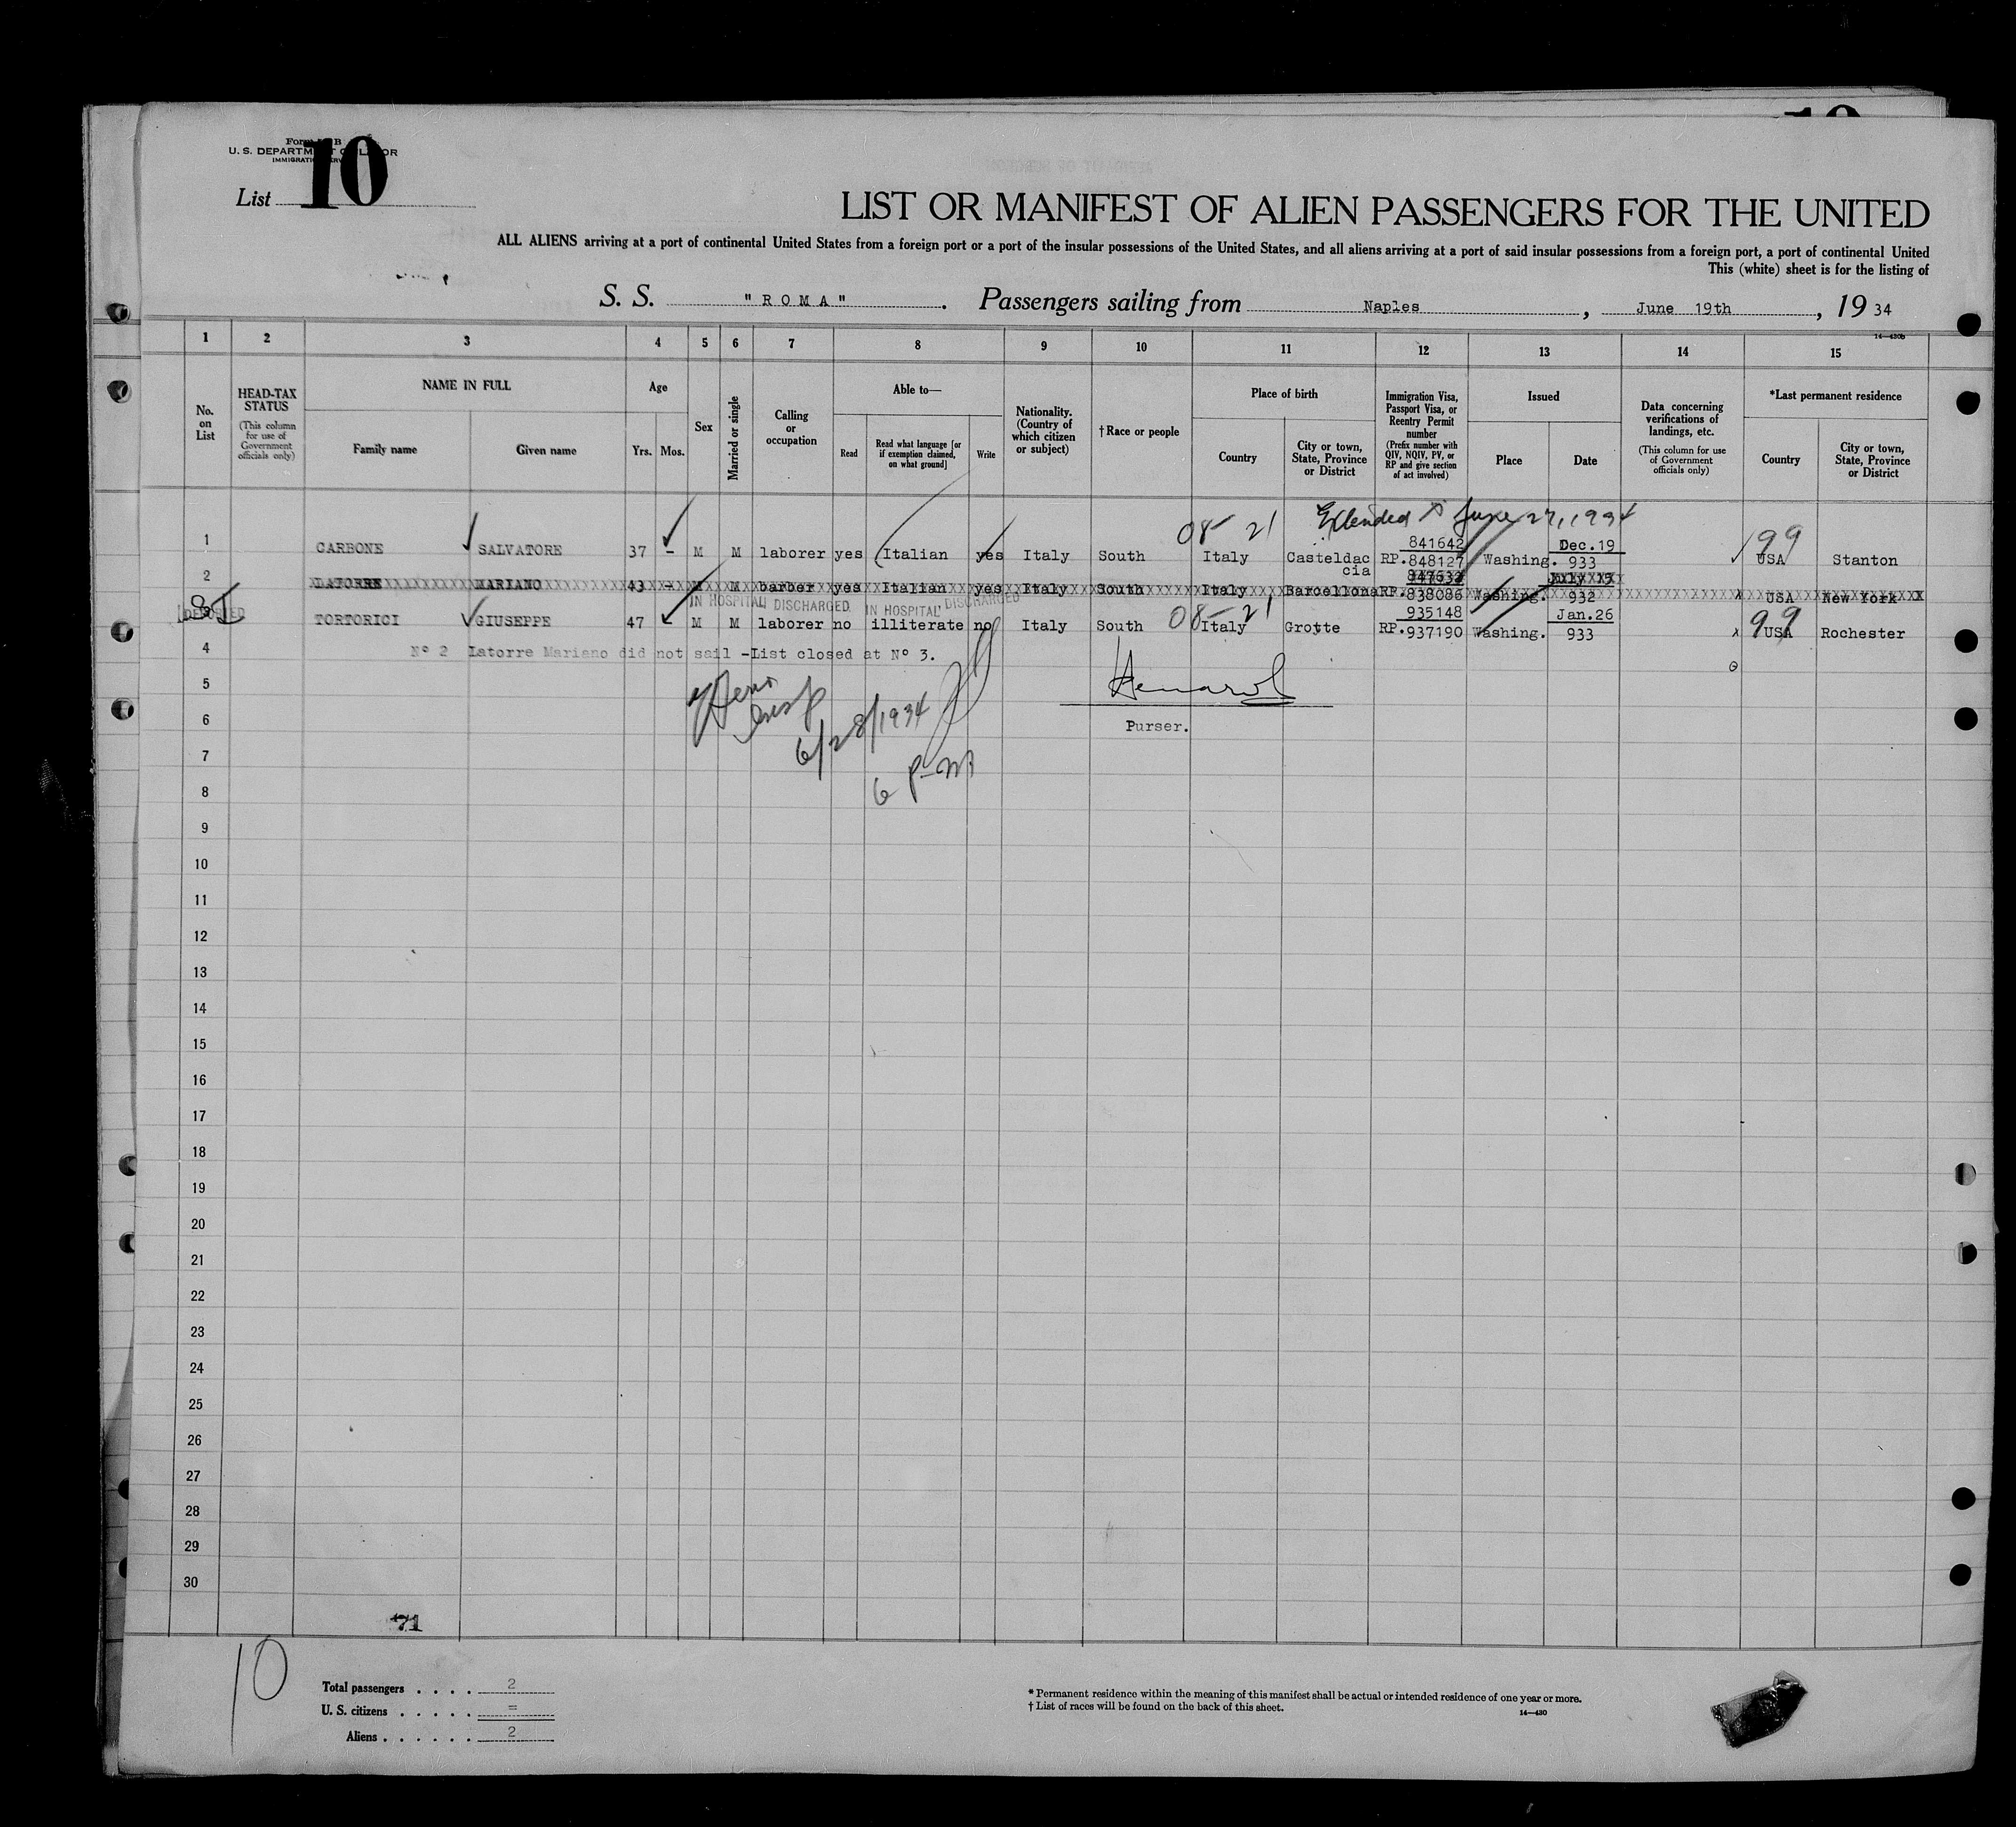 10
Form B
U. S. DEPARTMENT OF LABOR
IMMIGRATION SERV
List 10
LIST OR MANIFEST OF ALIEN PASSENGERS FOR THE UNITED
ALL ALIENS arriving at a port of continental United States from a foreign port or a port of the insular possessions of the United States, and all aliens arriving at a port of said insular possessions from a foreign port, a port of continental United
This (white) sheet is for the listing of
S. S. "ROMA". Passengers sailing from Naples, June 19th, 1934
14—430b
1 2 3 4 5 6 7 8 9 10 11 12 13 14 15
No. on List
HEAD-TAX STATUS (This column for use of Government officials only)
NAME IN FULL
Family name Given name
Age
Yrs. Mos.
Sex
Married or single
Calling or occupation
Able to—
Read
Read what language [or if exemption claimed, on what ground]
Write
Nationality. (Country of which citizen or subject)
†Race or people
Place of birth
Country
City or town, State, Province or District
Immigration Visa, Passport Visa, or Reentry Permit number (Prefix number with QIV, NQIV, PV, or RP and give section of act involved)
Issued
Place Date
Data concerning verifications of landings, etc. (This column for use of Government officials only)
*Last permanent residence
Country
City or town, State, Province or District
08- 21 Extended to June 27, 1934
841642 Dec.19 99
1 CARBONE SALVATORE 37 - M M laborer yes Italian yes Italy South Italy Casteldaccia RP.848127 Washing. 933 USA Stanton
July 19
2 LATORRE MARIANO 43 - M M barber yes Italian yes Italy South Italy Barcellona RP.838086 Washing. 932 USA New York
IN HOSPITAL DISCHARGED IN HOSPITAL DISCHARGED
08-21 935148 Jan.26 99
3 TORTORICI GIUSEPPE 47 M M laborer no illiterate no Italy South Italy Grotte RP.937190 Washing. 933 USA Rochester
4 Nº 2 Latorre Mariano did not sail -List closed at Nº 3.
5
6
6/28/1934
Purser.
7
6 P-M
8
9
10
11
12
13
14
15
16
17
18
19
20
21
22
23
24
25
26
27
28
29
30
71
10
Total passengers . . . . 2
U. S. citizens . . . . . =
Aliens . . . . . . 2
* Permanent residence within the meaning of this manifest shall be actual or intended residence of one year or more.
† List of races will be found on the back of this sheet.
14—430